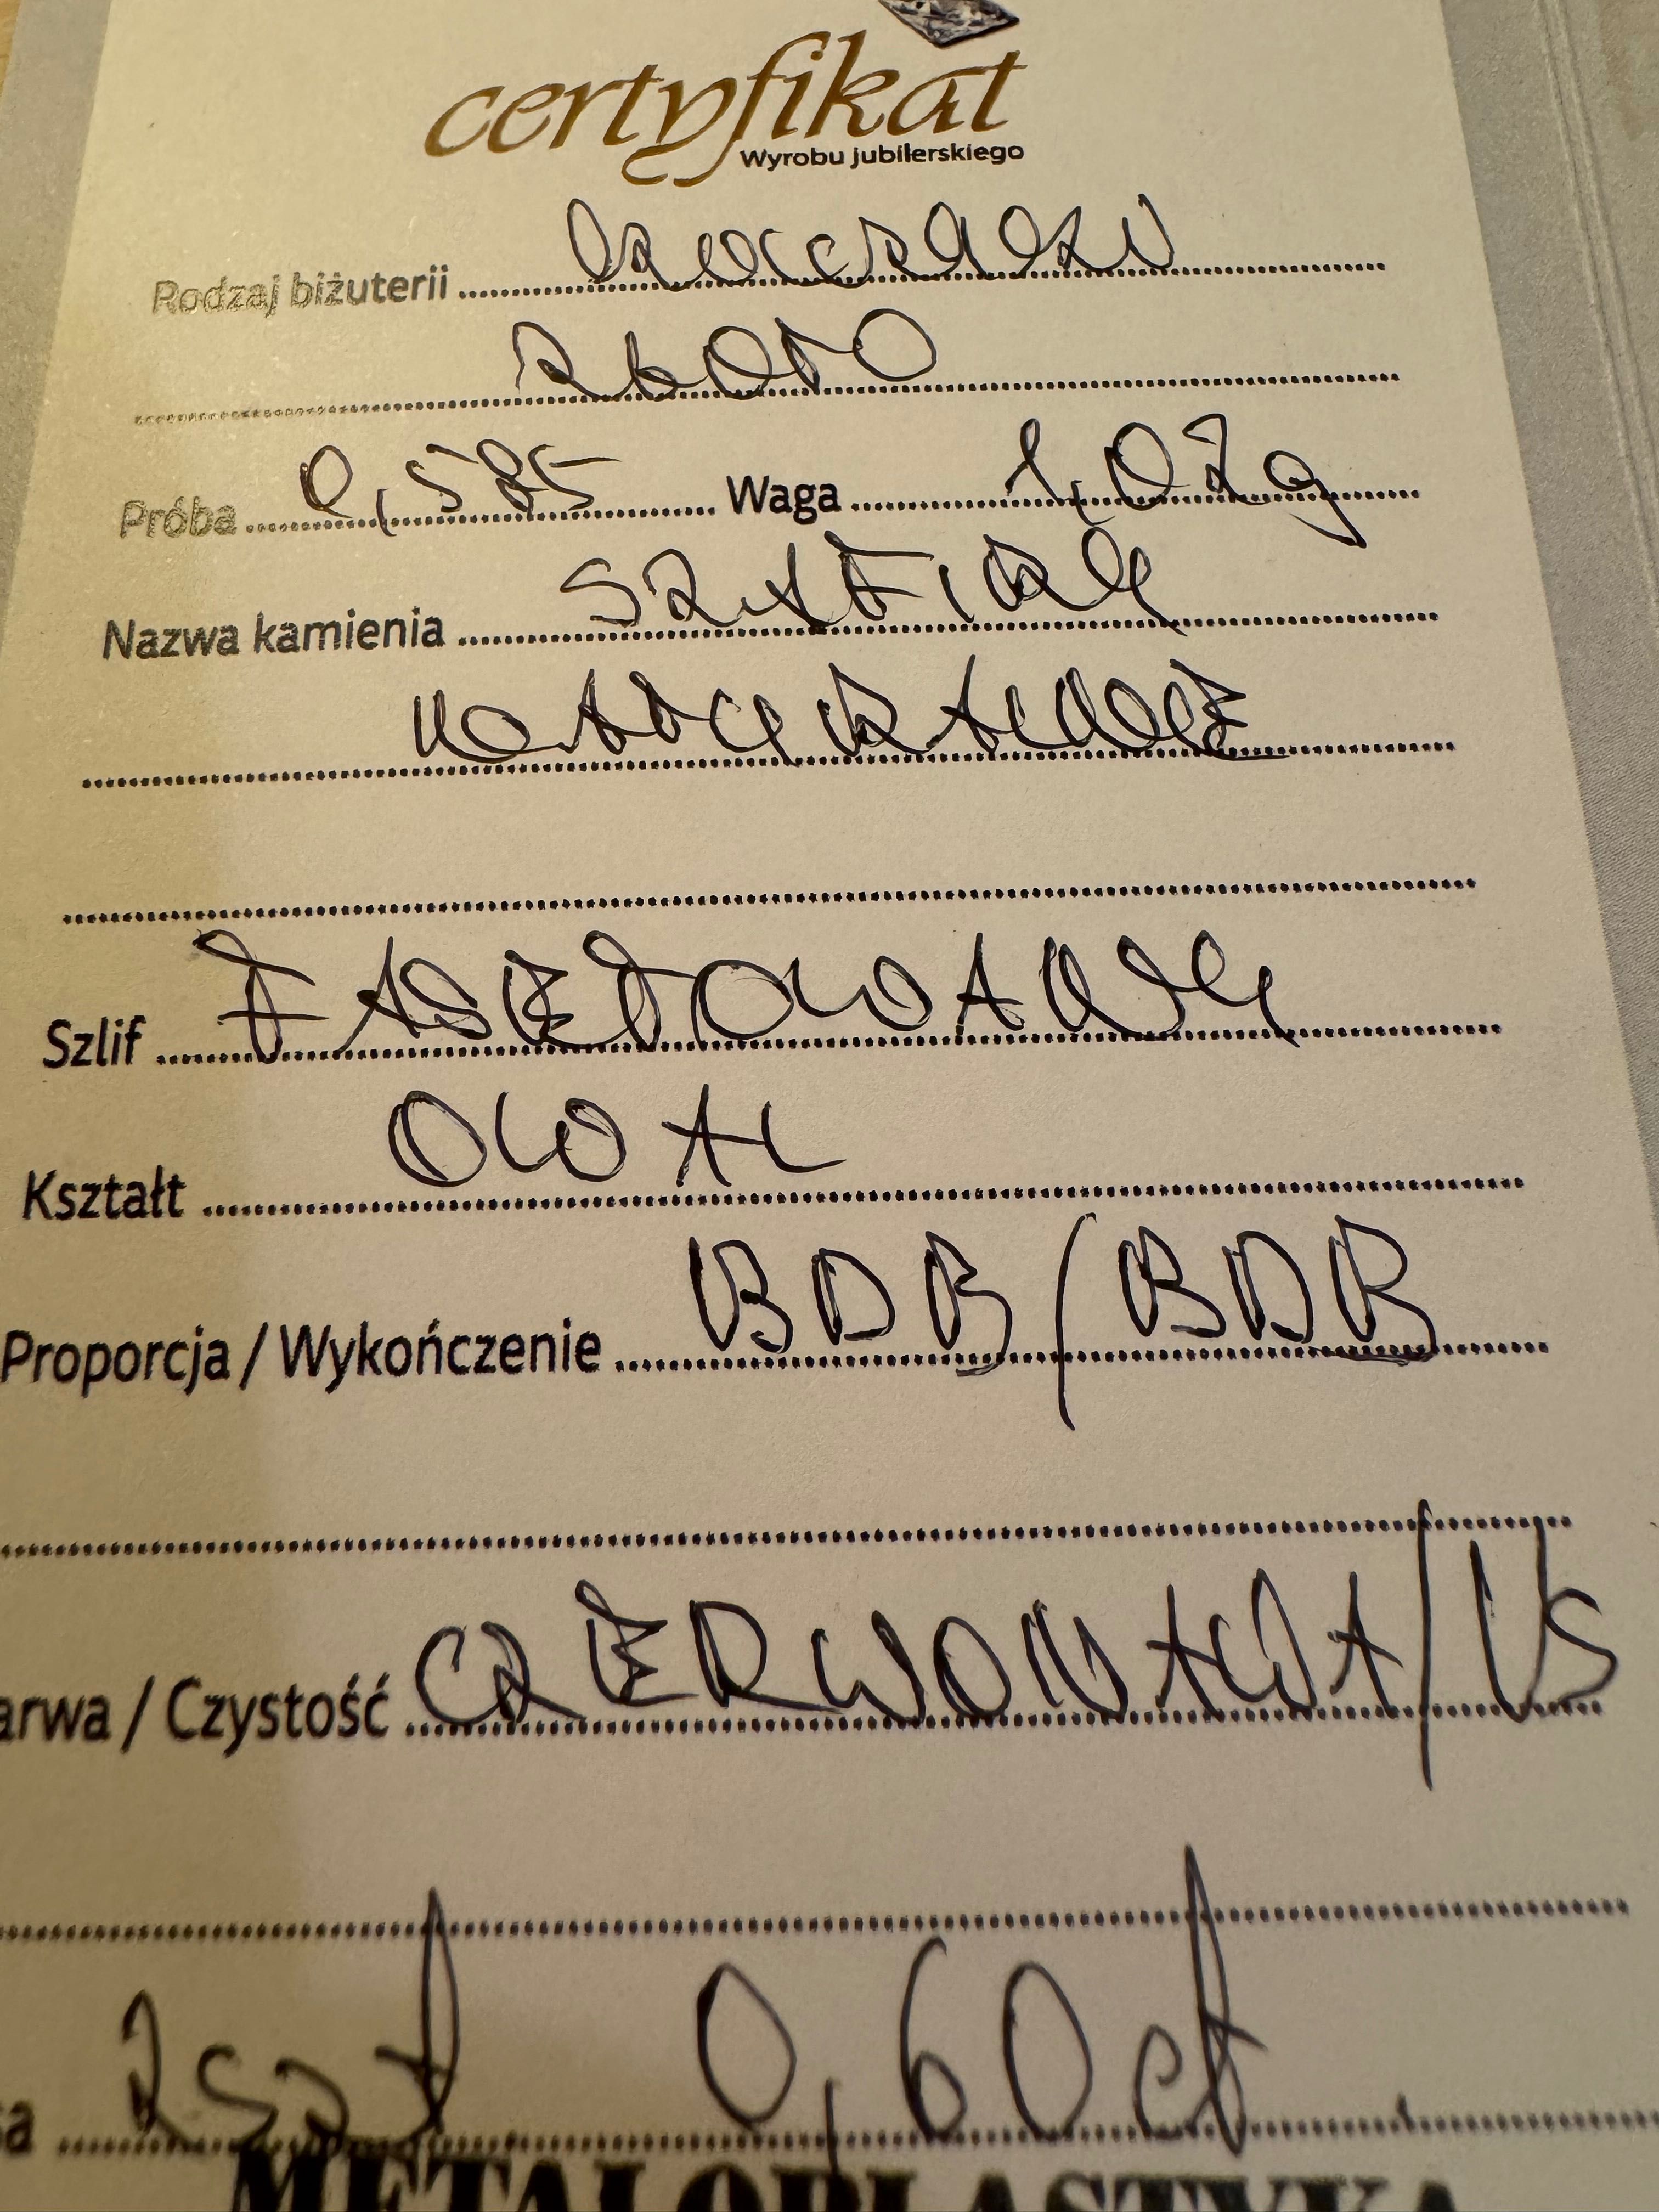 certyfikat
Wyrobu jubilerskiego
Rodzaj biżuterii
złoto
Próba 0,585 Waga 1,02g
Nazwa kamienia SZAFIRY
NATURALNE
Szlif FASETOWANY
Kształt OWAL
Proporcja / Wykończenie BDB/BDB
arwa / Czystość CZERWONAWA/VS
sa 2szt 0,60ct
METALOPLASTYKA